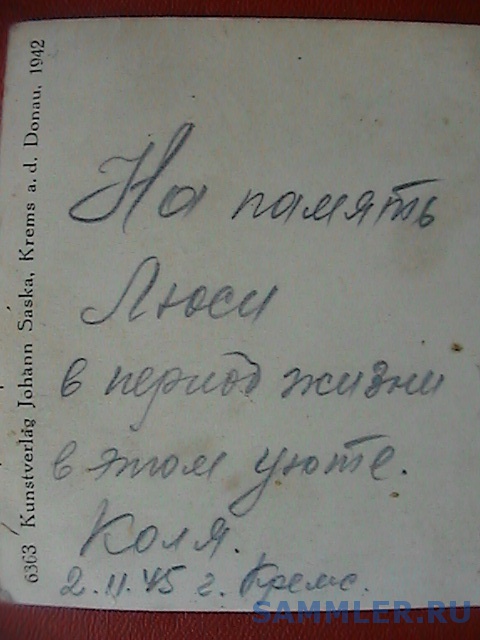 На память
Люси
в период жизни
в этом уюте.
Коля.
2.11.45 г. Кремс.
6363 Kunstverlag Johann Saska, Krems a. d. Donau, 1942
SAMMLER.RU